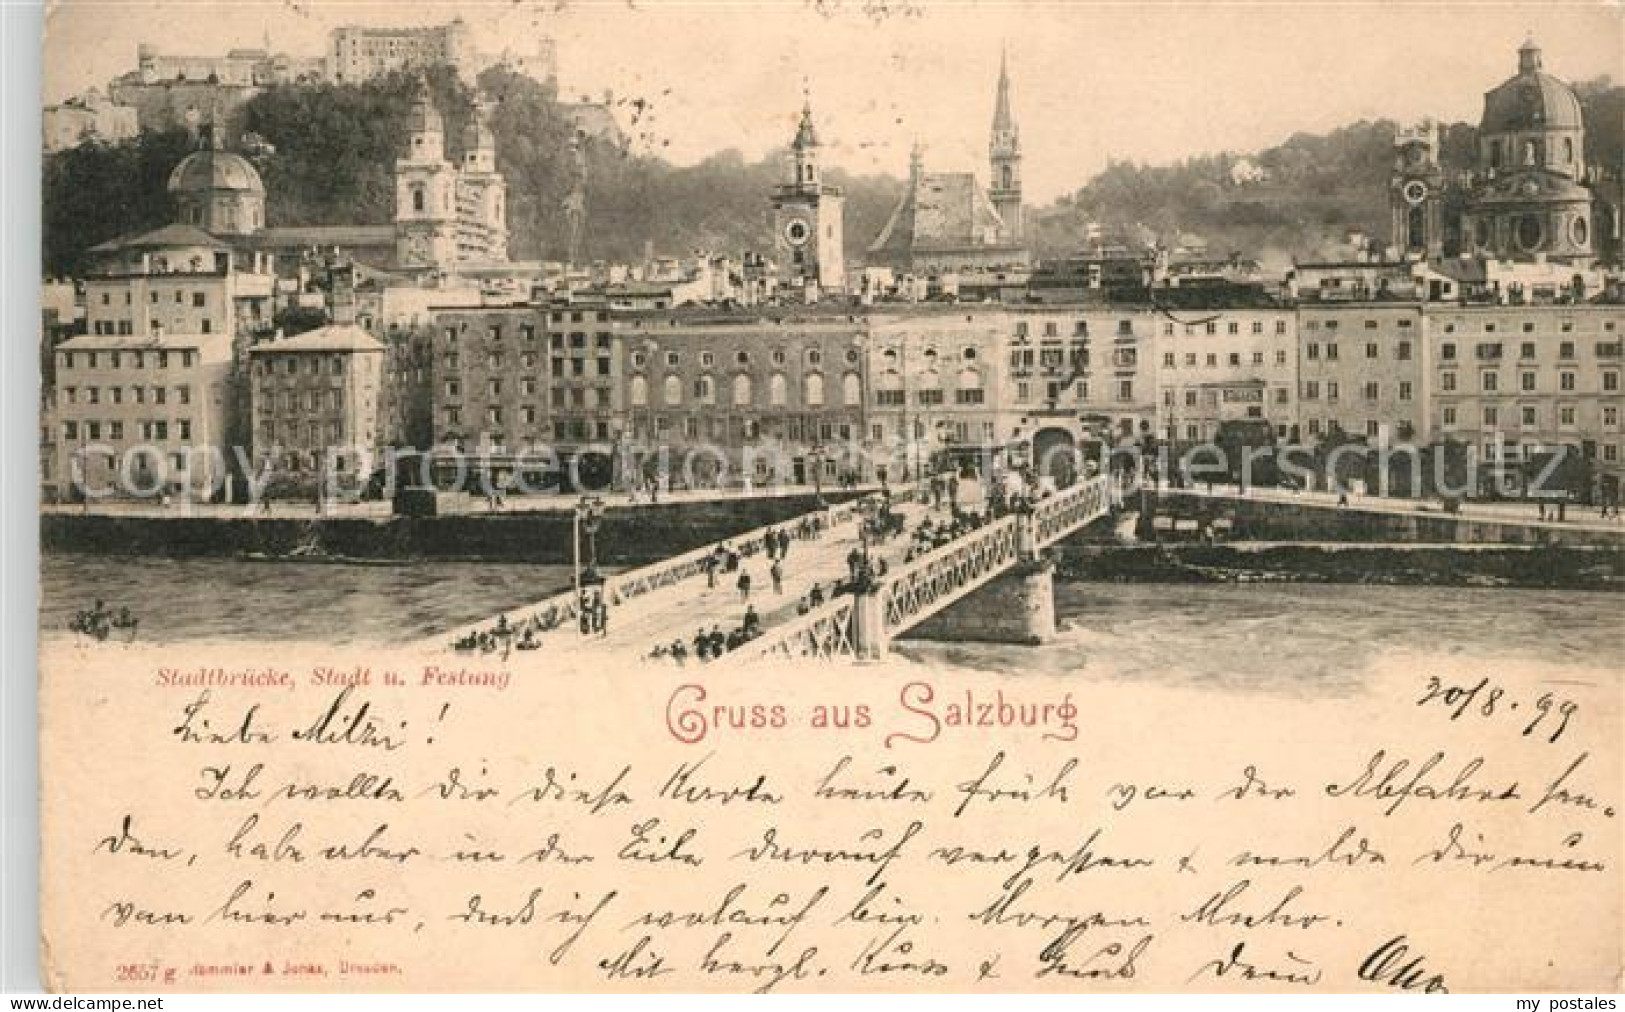 Stadtbrücke, Stadt u. Festung
Gruss aus Salzburg
30/8. 99
Liebe Mitzi!
Ich wollte dir diese Karte heute früh vor der Abfahrt sen-
den, habe aber in der Eile darauf vergessen & melde dir nun
von hier aus, daß ich wolauf bin. Morgen Mehr.
Mit herzl. Kuss & Gruß Dein Otto
2657 g Römmler & Jonas, Dresden.
copy protection by kopierschutz
my_postales